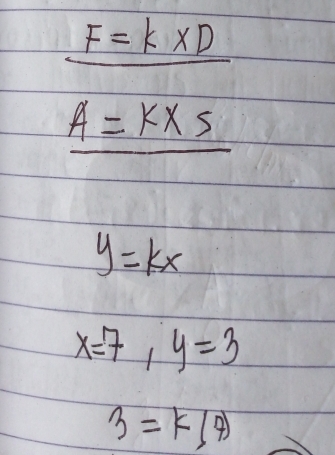 F = k × D
A = K × S
y = kx
x=7 , y = 3
3 = k(7)